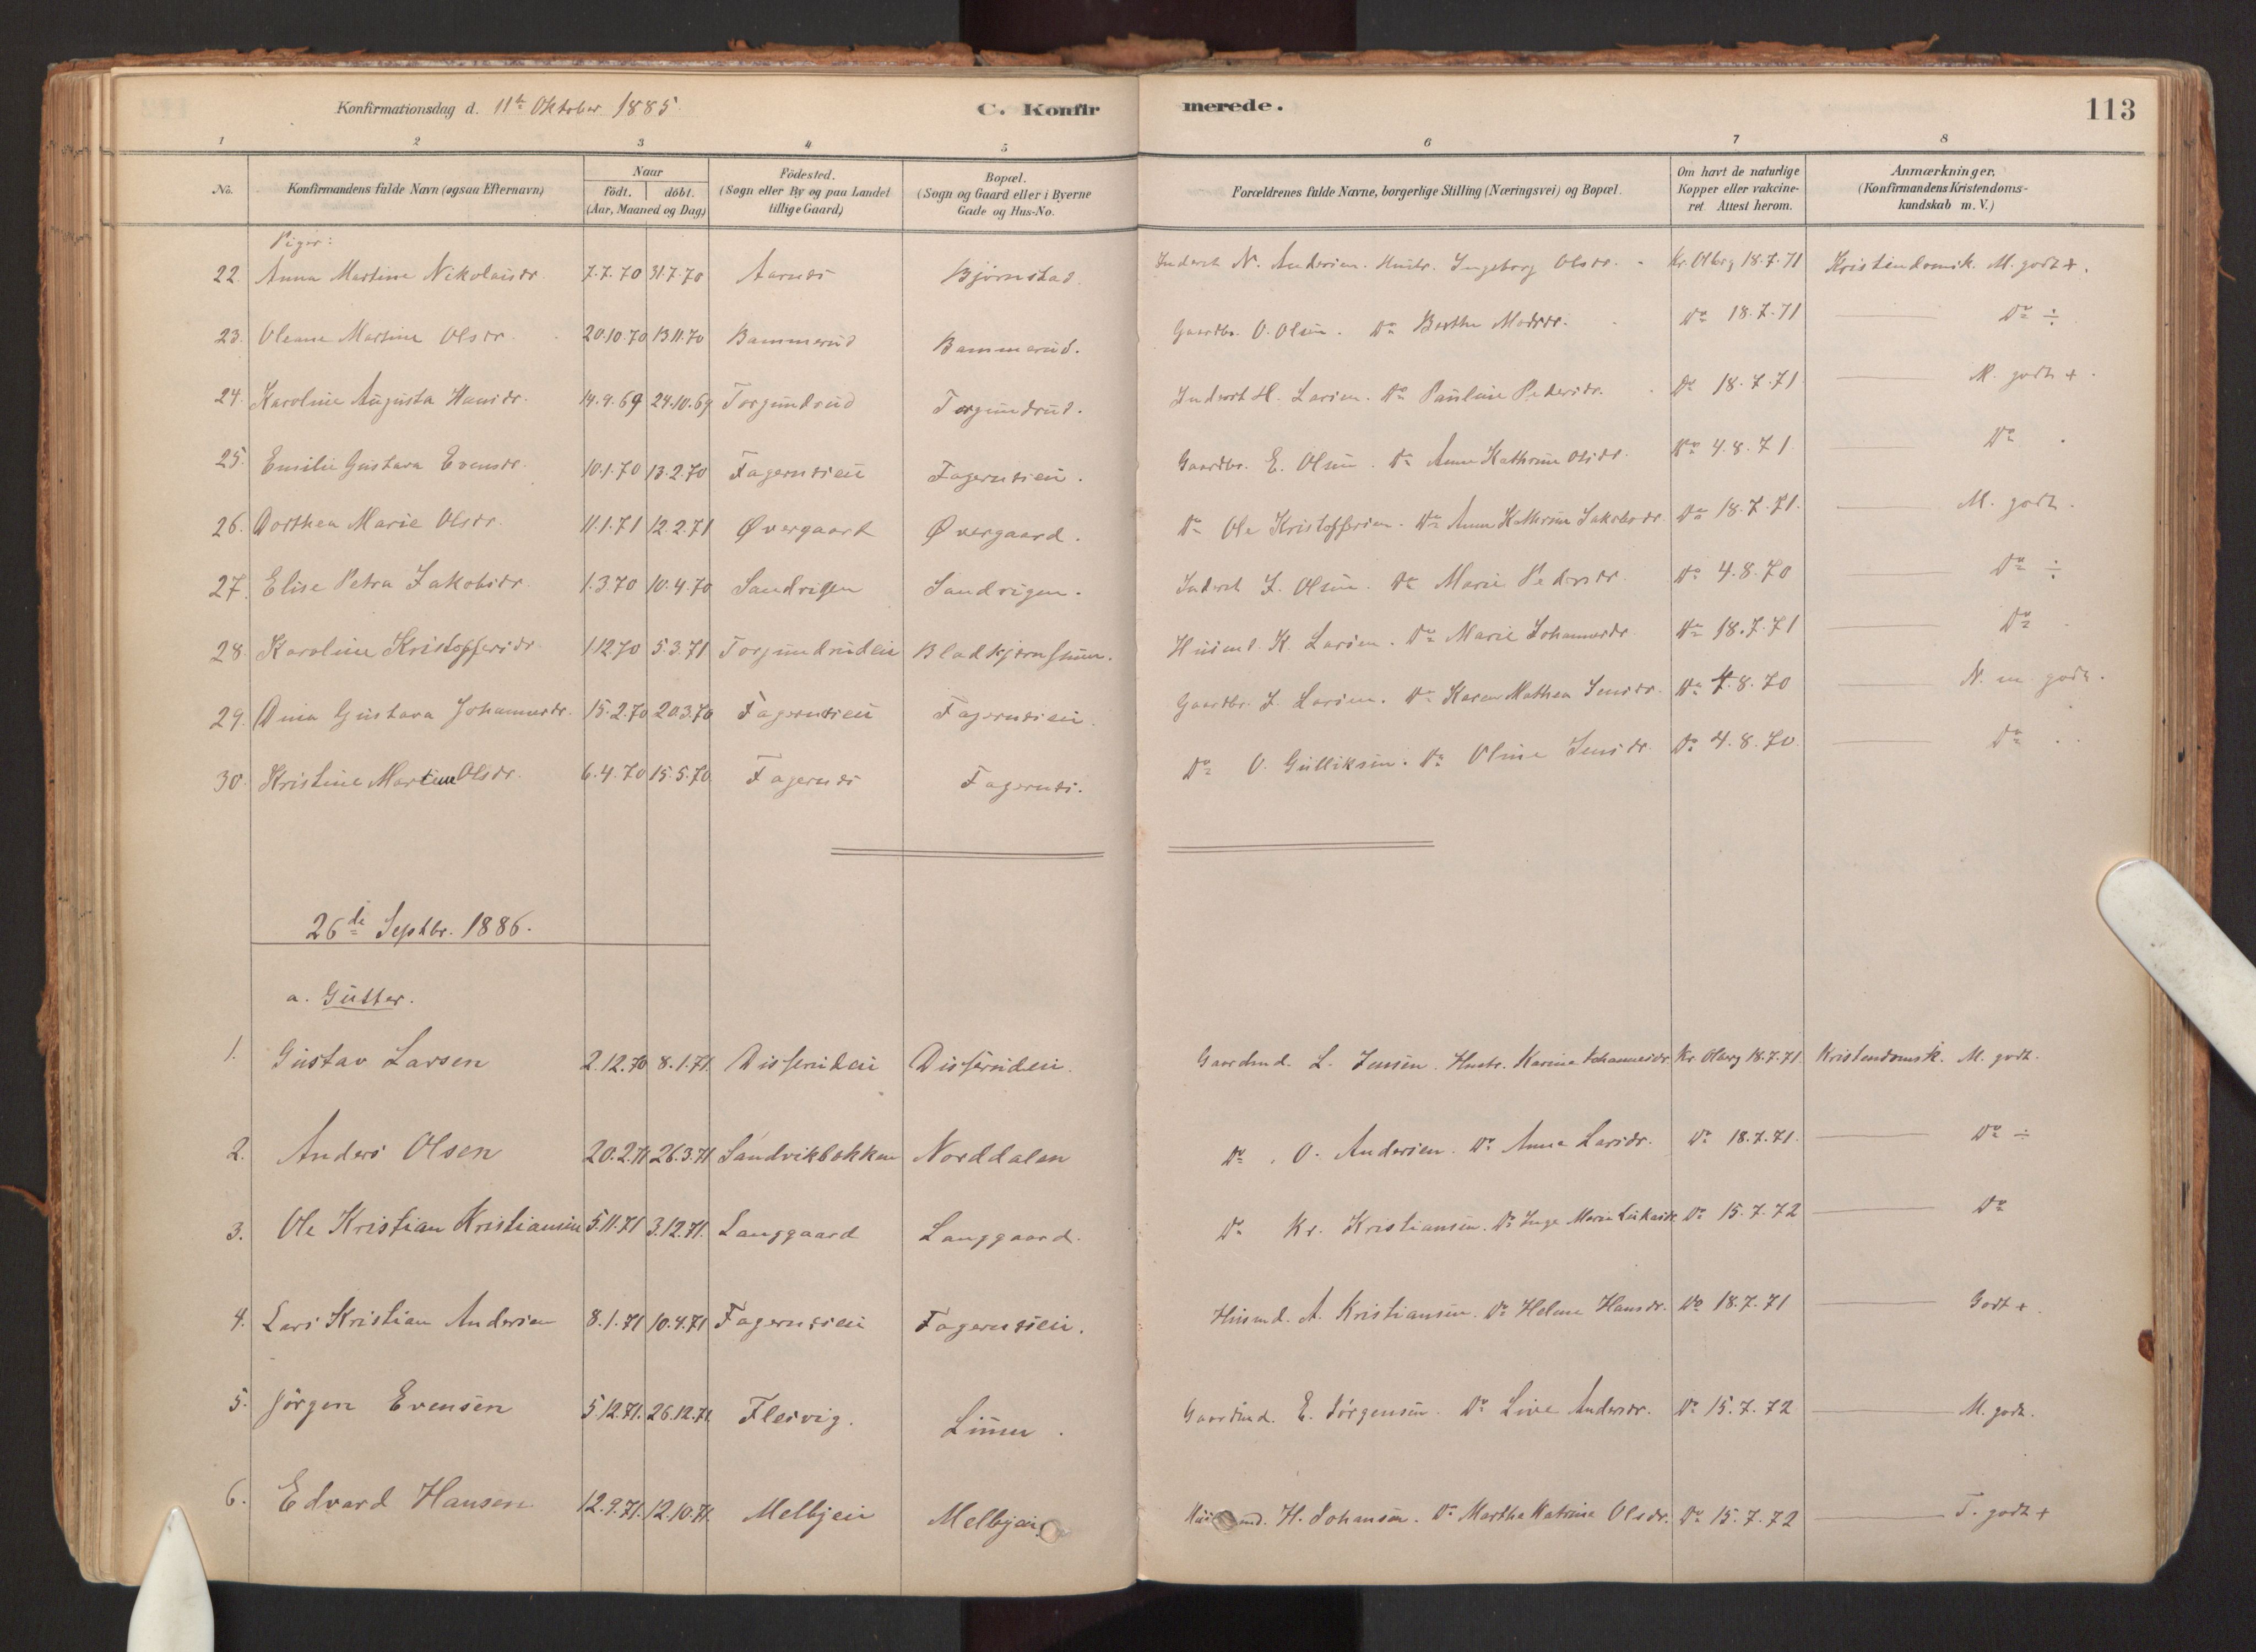 Konfirmationsdag d. 11te Oktober 1885. C. Konfirmerede. 113
1 2 3 4 5 6 7 8
No. Konfirmandens fulde Navn (ogsaa Efternavn) Naar födt. döbt. (Aar, Maaned og Dag) Födested. (Sogn eller By og paa Landet tillige Gaard) Bopæl. (Sogn og Gaard eller i Byerne Gade og Hus-No. Forældrenes fulde Navne, borgerlige Stilling (Næringsvei) og Bopæl. Om havt de naturlige Kopper eller vakcineret. Attest herom. Anmærkninger, (Konfirmandens Kristendomskundskab m. V.)
Piger:
22. Anna Martine Nikolaisdr. 7.7.70 31.7.70 Aarnes Bjørnstad. Inderst N. Andersen. Hustr. Ingeborg Olsdr. Kr. Olberg 18.7.71 Kristendomsk. M. godt +.
23. Oleane Martine Olsdr. 20.10.70 13.11.70 Bammerud Bammerud. Gaardbr. O. Olsen. Do Berthe Madsdr. Do 18.7.71 Do ÷
24. Karoline Augusta Hansdr. 14.9.69 24.10.69 Torgundrud Torgundrud. Inderst H. Larsen. Do Pauline Pedersdr. Do 18.7.71 M. godt +.
25. Emilie Gustava Evensdr. 10.1.70 13.2.70 Fagernesei Fagernesei. Gaardbr. E. Olsen. Do Anne Kathrine Olsdr. Do 4.8.71 Do.
26. Dorthea Marie Olsdr. 11.1.71 12.2.71 Øvergaard Øvergaard. Do Ole Kristoffersen. Do Anne Kathrine Jakobsdr. Do 18.7.71. M. godt.
27. Elise Petra Jakobsdr. 1.3.70 10.4.70 Sandvigen Sandvigen. Inderst J. Olsen. Do Marie Pedersdr. Do 4.8.70 Do ÷
28. Karoline Kristoffersdr. 1.12.70 5.3.71 Torgundrudeie Husmd. K. Larsen. Do Marie Johannesdr. Do 18.7.71 Do.
29. Dina Gustava Johannesdr. 15.2.70 20.3.70 Fagernesei Fagernesei. Gaardbr. J. Larsen. Do Karen Mathea Jensdr. Do 4.8.70 N. m. godt.
30. Kristine Martine Olsdr. 6.4.70 15.5.70 Fagernes Fagernes. Do O. Gulliksen. Do Oline Jensdr. Do 4.8.70. Do.
26de Septbr. 1886.
a. Gutter.
1. Gustav Larsen 2.12.70 8.1.71. Disserudeie Disserudeie. Gaardmd. L. Jensen. Hustr. Karine Johannesdr. Kr. Olberg 18.7.71 Kristendomsk. M. godt.
2. Anders Olsen 20.2.71 26.3.71. Sandvikbakken Norddalen Do. O. Andersen. Do Anna Larsdr. Do 18.7.71. Do ÷
3. Ole Kristian Kristiansen 5.11.71 3.12.71. Langgaard Langgaard. Do Kr. Kristiansen. Do Inge Marie Do 15.7.72 Do
4. Lars Kristian Andersen 8.1.71 10.4.71 Fagernesei Fagernesei. Husmd. A. Kristiansen. Do Helene Hansdr. Do 18.7.71 Godt +.
5. Jörgen Evensen 5.12.71. 26.12.71. Flesvig. Linnu. Gaardmd. E. Jörgensen. Do Live Andersdr. Do 15.7.72 M. godt.
6. Edvard Hansen 12.9.71. 12.10.71. Melbyeie Melbyeie md. H. Johansen. Do Marthe Katrine Olsdr. Do 15.7.72 T. godt +